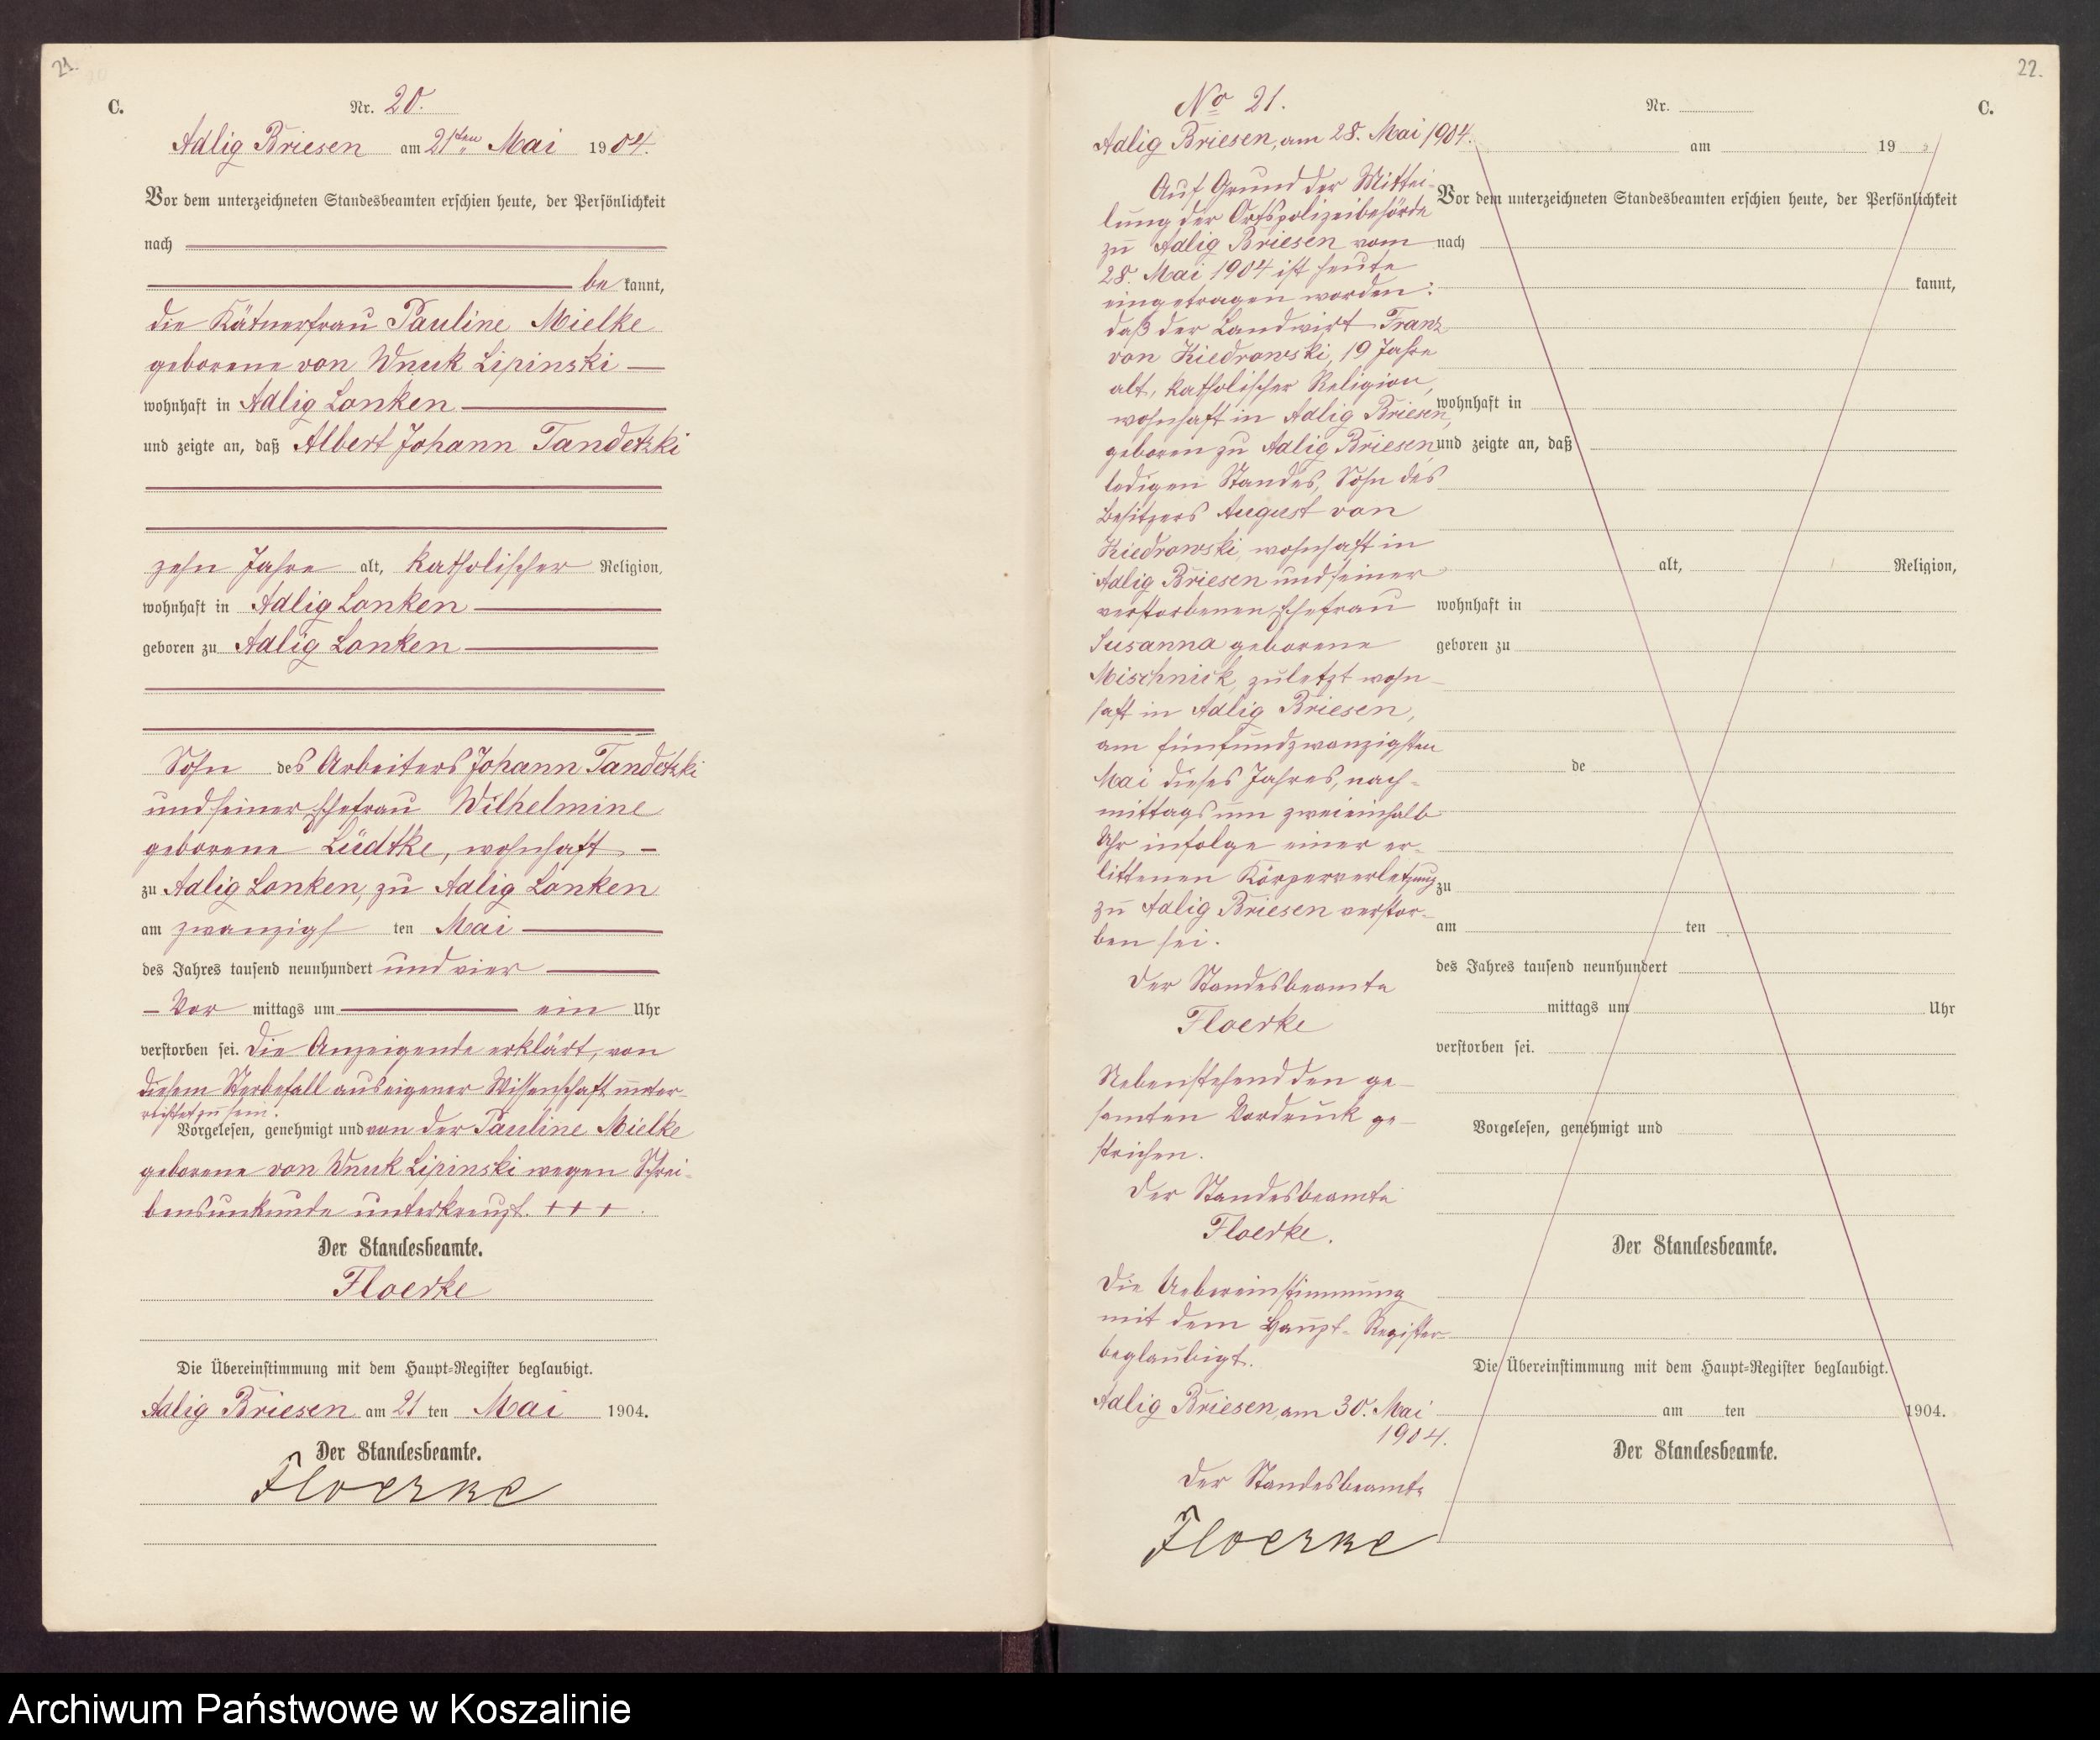 21.
C.
Nr. 20.
Adlig Briesen am 21ten Mai 1904.
Vor dem unterzeichneten Standesbeamten erschien heute, der Persönlichkeit
nach
be kannt,
die Kätnerfrau Pauline Mielke
geborene von Wnuk Lipinski
wohnhaft in Adlig Lonken
und zeigte an, daß Albert Johann Tandetzki
zehn Jahre alt, katholischer Religion,
wohnhaft in Adlig Lonken
geboren zu Adlig Lonken
Sohn des Arbeiters Johann Tandetzki
und seiner Ehefrau Wilhelmine
geborene Lüdtke, wohnhaft
zu Adlig Lonken, zu Adlig Lonken
am zwanzigsten Mai
des Jahres tausend neunhundert und vier
Vor mittags um ein Uhr
verstorben sei. Die Anzeigende erklärt, von
diesem Sterbefall aus eigener Wissenschaft unter-
richtet zu sein.
Vorgelesen, genehmigt und von der Pauline Mielke
geborene von Wnuk Lipinski wegen Schrei-
bensunkunde unterkreuzt. + + + .
Der Standesbeamte.
Floerke
Die Übereinstimmung mit dem Haupt-Register beglaubigt.
Adlig Briesen am 21 ten Mai 1904.
Der Standesbeamte.
Floerke
22.
No 21.
Adlig Briesen, am 28. Mai 1904.
Auf Grund der Mittei-
lung der Ortspolizeibehörde
zu Adlig Briesen vom
28. Mai 1904 ist heute
eingetragen worden:
daß der Landwirt Franz
von Kiedrowski, 19 Jahre
alt, katholischer Religion,
wohnhaft in Adlig Briesen,
geboren zu Adlig Briesen,
ledigen Standes, Sohn des
Besitzers August von
Kiedrowski, wohnhaft in
Adlig Briesen und seiner
verstorbenen Ehefrau
Susanna geborene
Mischnick, zuletzt wohn-
haft in Adlig Briesen,
am fünfundzwanzigsten
Mai dieses Jahres, nach-
mittags um zweieinhalb
Uhr infolge einer er-
littenen Körperverletzung
zu Adlig Briesen verstor-
ben sei.
Der Standesbeamte
Floerke
Nebenstehend den ge-
samten Vordruck ge-
strichen.
Der Standesbeamte
Floerke.
Die Uebereinstimmung
mit dem Haupt-Register
beglaubigt.
Adlig Briesen, am 30. Mai
1904.
Der Standesbeamte
Floerke
Nr.
C.
am 19
Vor dem unterzeichneten Standesbeamten erschien heute, der Persönlichkeit
nach
kannt,
wohnhaft in
und zeigte an, daß
alt, Religion,
wohnhaft in
geboren zu
de
zu
am ten
des Jahres tausend neunhundert
mittags um Uhr
verstorben sei.
Vorgelesen, genehmigt und
Der Standesbeamte.
Die Übereinstimmung mit dem Haupt-Register beglaubigt.
am ten 1904.
Der Standesbeamte.
Archiwum Państwowe w Koszalinie